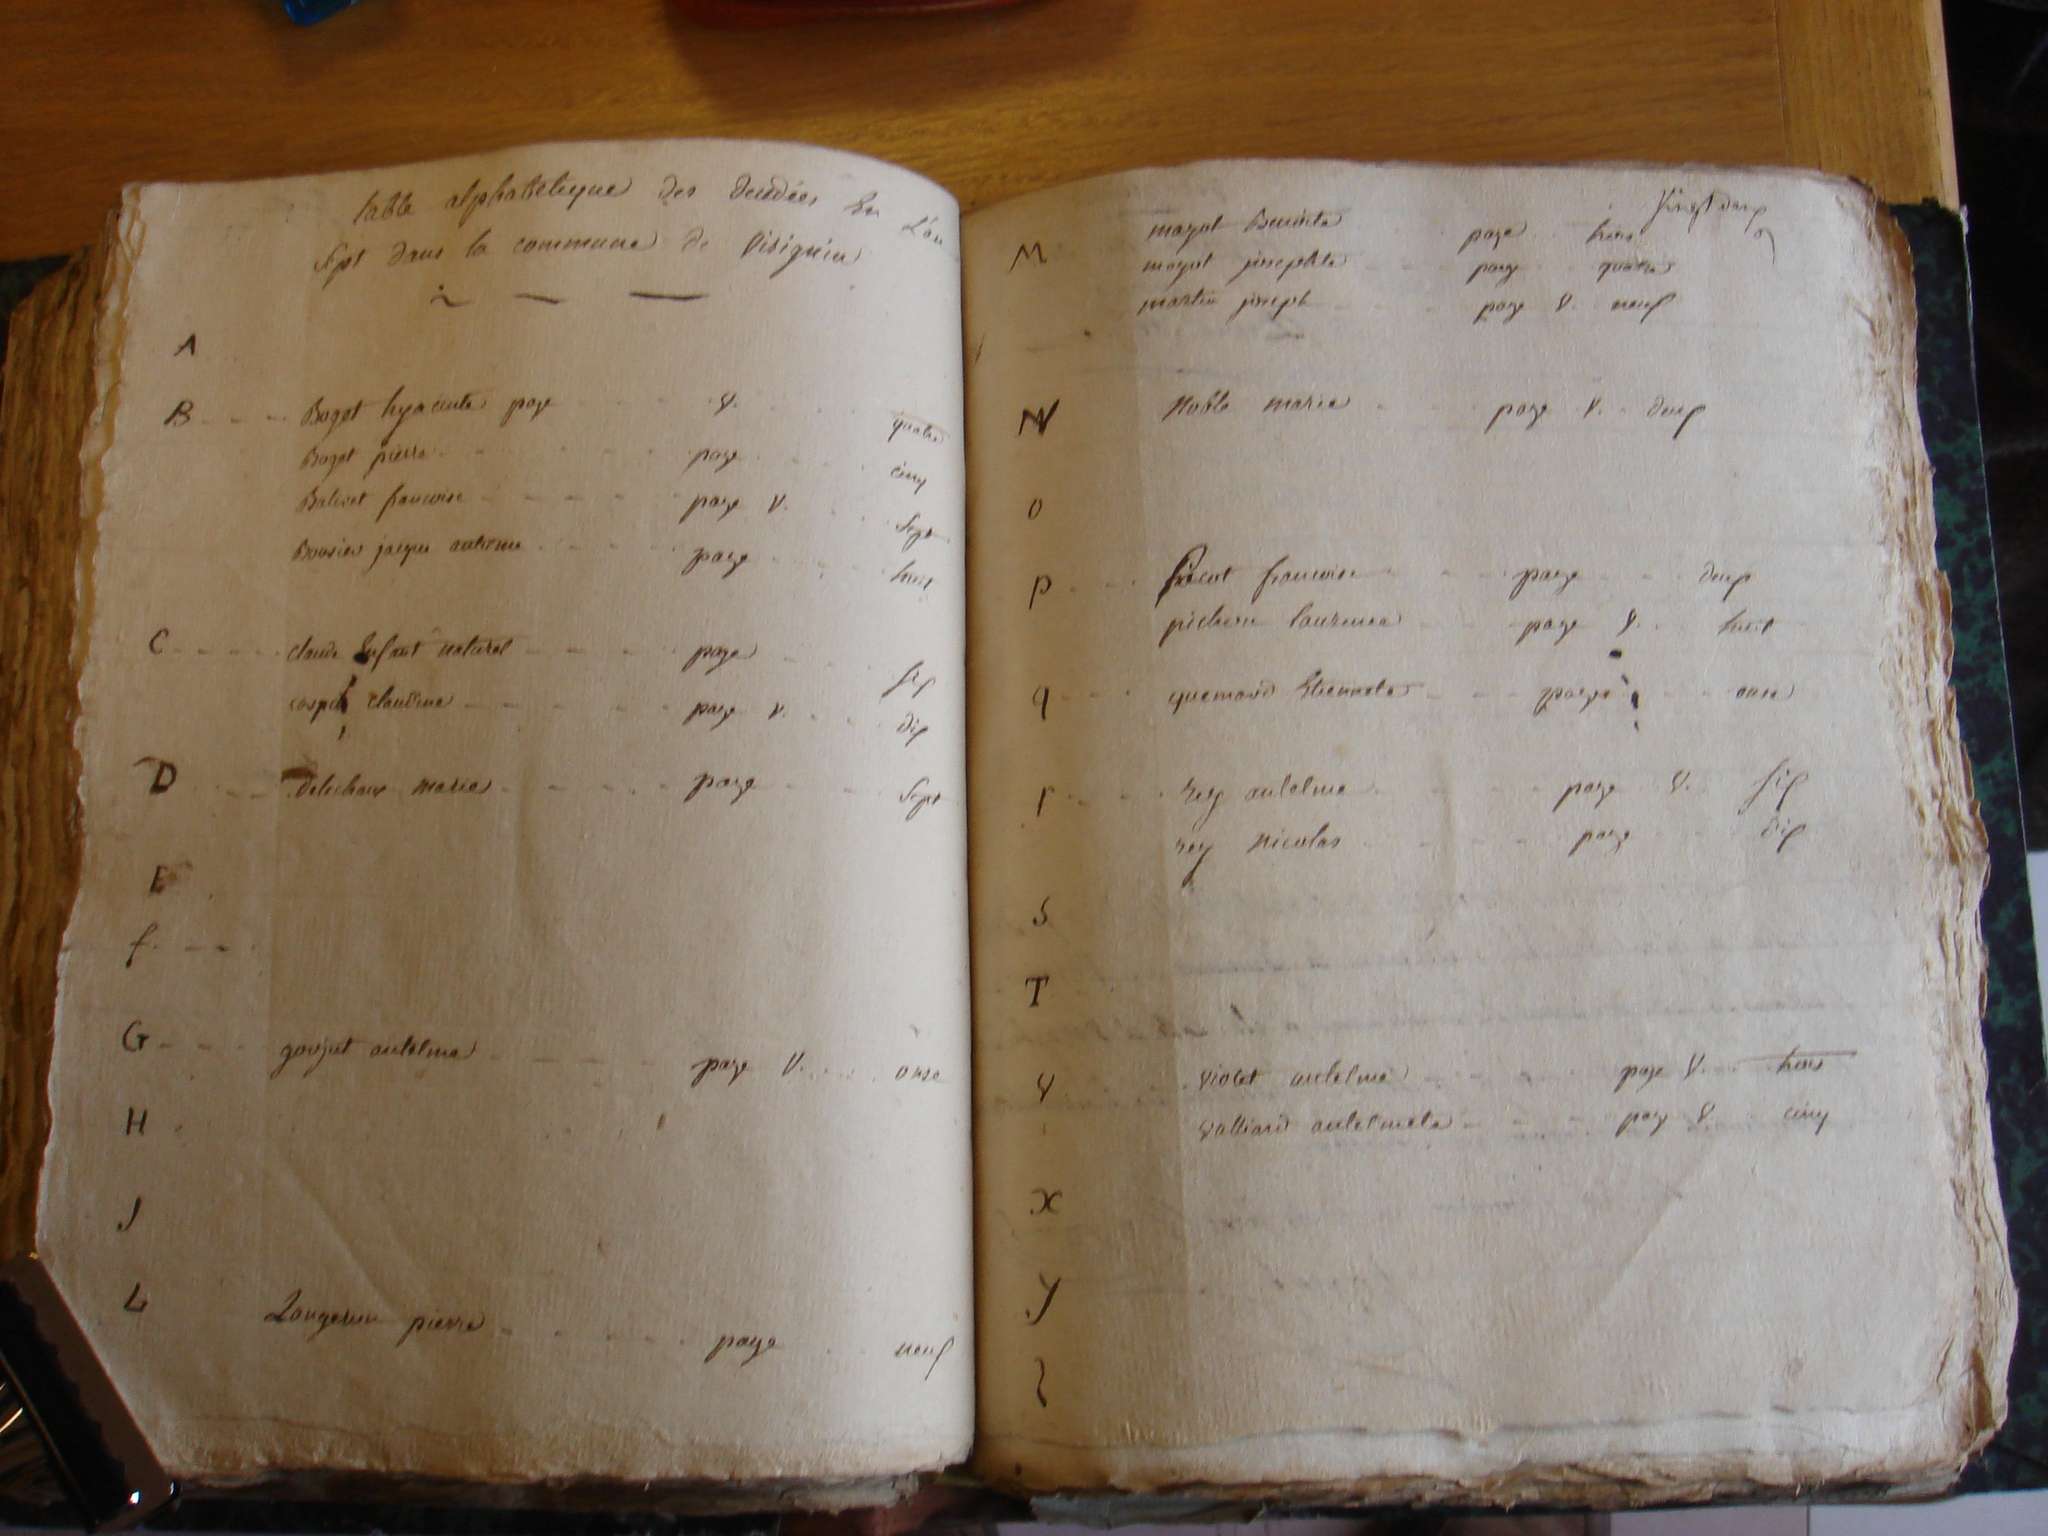 table alphabetique des decedées En L'an
Sept dans la commune de Virignin
A
B Boget hyacinte page V. quatre
Boget pierre page cinq
Balivet francoise page V. sept
Brosier jacque antoine page huit
C claude Enfant naturel page six
claudine page V. dix
D Delechaux marie page sept
E
f.
G goujet antelme page V. onse
H
J
L Longeron pierre page neuf
vingt deux
M mayot Benoite page trois
mayot josephte page quatre
martin joseph page V. neuf
N Noble marie page V. deux
O
P francoise page deux
pichon laurence page V. huit
q quemard Etiennete page onse
r rey antelme page V. six
rey nicolas page dix
S
T
V violet antelme page V. trois
valliard antelmete page V. cinq
X
y
Z